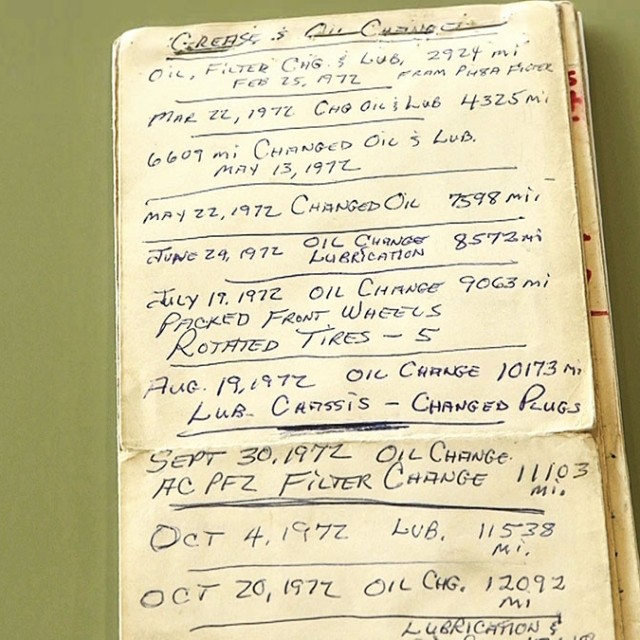 GREASE & OIL CHANGE
OIL, FILTER CHG. & LUB, 2924 mi
FEB 25, 1972 FRAM PH8A FILTER
MAR 22, 1972 CHG OIL & LUB 4325 mi
6609 mi CHANGED OIL & LUB.
MAY 13, 1972
MAY 22, 1972 CHANGED OIL 7598 mi.
JUNE 29, 1972 OIL CHANGE 8572 mi
LUBRICATION
JULY 19, 1972 OIL CHANGE 9063 mi
PACKED FRONT WHEELS
ROTATED TIRES - 5
AUG. 19, 1972 OIL CHANGE 10173 mi
LUB- CHASSIS - CHANGED PLUGS
SEPT 30, 1972 OIL CHANGE
AC PF2 FILTER CHANGE 11103
mi.
OCT 4, 1972 LUB. 11538
mi.
OCT 20, 1972 OIL CHG. 12092
mi
LUBRICATION &